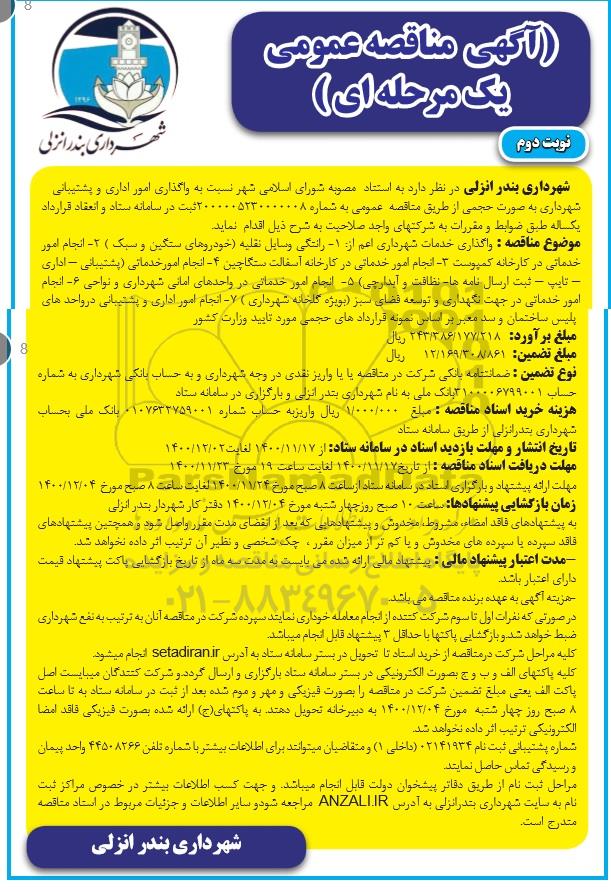 8
(آگهی مناقصه عمومی
یک مرحله ای)
نوبت دوم
۱۲۹۶
شهرداری بندر انزلی
شهرداری بندر انزلی در نظر دارد به استناد مصوبه شورای اسلامی شهر نسبت به واگذاری امور اداری و پشتیبانی
شهرداری به صورت حجمی از طریق مناقصه عمومی به شماره ۲۰۰۰۰۰۵۲۳۰۰۰۰۰۰۸ثبت در سامانه ستاد و انعقاد قرارداد
یکساله طبق ضوابط و مقررات به شرکتهای واجد صلاحیت به شرح ذیل اقدام نماید.
موضوع مناقصه : واگذاری خدمات شهرداری اعم از: ۱- رانندگی وسایل نقلیه (خودروهای سنگین و سبک ) ۲- انجام امور
خدماتی در کارخانه کمپوست ۳- انجام امور خدماتی در کارخانه آسفالت سنگاچین ۴- انجام امورخدماتی (پشتیبانی – اداری
– تایپ – ثبت ارسال نامه ها- نظافت و آبدارچی ) ۵- انجام امور خدماتی در واحدهای امانی شهرداری و نواحی ۶- انجام
امور خدماتی در جهت نگهداری و توسعه فضای سبز (بویژه گلخانه شهرداری ) ۷- انجام امور اداری و پشتیبانی درواحد های
پلیس ساختمان و سد معبر بر اساس نمونه قرارداد های حجمی مورد تایید وزارت کشور
8
مبلغ برآورد: ۲۴۳/۳۸۶/۱۷۷/۲۱۸ ریال
مبلغ تضمین: ۱۲/۱۶۹/۳۰۸/۸۶۱ ریال
نوع تضمین : ضمانتنامه بانکی شرکت در مناقصه یا یا واریز نقدی در وجه شهرداری و به حساب بانکی شهرداری به شماره
حساب ۳۱۰۰۰۰۶۷۹۹۰۰۱بانک ملی به نام شهرداری بندر انزلی و بارگزاری در سامانه ستاد
هزینه خرید اسناد مناقصه : مبلغ ۱/۰۰۰/۰۰۰ ریال واریزبه حساب شماره ۰۱۰۷۶۳۲۷۵۹۰۰۱ بانک ملی بحساب
شهرداری بندرانزلی از طریق سامانه ستاد
تاریخ انتشار و مهلت بازدید اسناد در سامانه ستاد: از ۱۴۰۰/۱۱/۱۷ لغایت۱۴۰۰/۱۲/۰۲
مهلت دریافت اسناد مناقصه : از تاریخ۱۴۰۰/۱۱/۱۷ لغایت ساعت ۱۹ مورخ ۱۴۰۰/۱۱/۲۳
مهلت ارائه پیشنهاد و بارگزاری اسناد در سامانه ستاد ازساعت ۸ صبح مورخ ۱۴۰۰/۱۱/۲۴ لغایت ساعت ۸ صبح مورخ ۱۴۰۰/۱۲/۰۴
زمان بازگشایی پیشنهادها: ساعت ۱۰ صبح روزچهار شنبه مورخ ۱۴۰۰/۱۲/۰۴ دفتر کار شهردار بندر انزلی
به پیشنهادهای فاقد امضاء، مشروط، مخدوش و پیشنهادهایی که بعد از انقضای مدت مقرر واصل شود و همچنین پیشنهادهای
فاقد سپرده یا سپرده های مخدوش و یا کم تر از میزان مقرر ، چک شخصی و نظیر آن ترتیب اثر داده نخواهد شد.
–مدت اعتبار پیشنهاد مالی : پیشنهاد مالی ارائه شده می بایست به مدت سه ماه از تاریخ بازگشایی پاکت پیشنهاد قیمت
دارای اعتبار باشد.
-هزینه آگهی به عهده برنده مناقصه می باشد.
در صورتی که نفرات اول تا سوم شرکت کننده از انجام معامله خوداری نمایند سپرده شرکت در مناقصه آنان به ترتیب به نفع شهرداری
ضبط خواهد شد.و بازگشایی پاکتها با حداقل ۳ پیشنهاد قابل انجام میباشد.
کلیه مراحل شرکت درمناقصه از خرید اسناد تا تحویل در بستر سامانه ستاد به آدرس setadiran.ir انجام میشود.
کلیه پاکتهای الف و ب و ج بصورت الکترونیکی در بستر سامانه ستاد بارگزاری و ارسال گردد.و شرکت کنندگان میبایست اصل
پاکت الف یعنی مبلغ تضمین شرکت در مناقصه را بصورت فیزیکی و مهر و موم شده بعد از ثبت در سامانه ستاد به تا ساعت
۸ صبح روز چهار شنبه مورخ ۱۴۰۰/۱۲/۰۴ به دبیرخانه تحویل دهند. به پاکتهای(ج) ارائه شده بصورت فیزیکی فاقد امضا
الکترونیکی ترتیب اثر داده نخواهد شد.
شماره پشتیبانی ثبت نام ۰۲۱۴۱۹۳۴ (داخلی ۱) و متقاضیان میتوانند برای اطلاعات بیشتر با شماره تلفن ۴۴۵۰۸۲۶۶ واحد پیمان
و رسیدگی تماس حاصل نمایند.
مراحل ثبت نام از طریق دفاتر پیشخوان دولت قابل انجام میباشد. و جهت کسب اطلاعات بیشتر در خصوص مراکز ثبت
نام به سایت شهرداری بندرانزلی به آدرس ANZALI.IR مراجعه شودو سایر اطلاعات و جزئیات مربوط در اسناد مناقصه
مندرج است.
شهرداری بندر انزلی
پایگاه اطلاع رسانی مناقصه و مزایده
۰۲۱-۸۸۳۴۹۶۷۰-۵